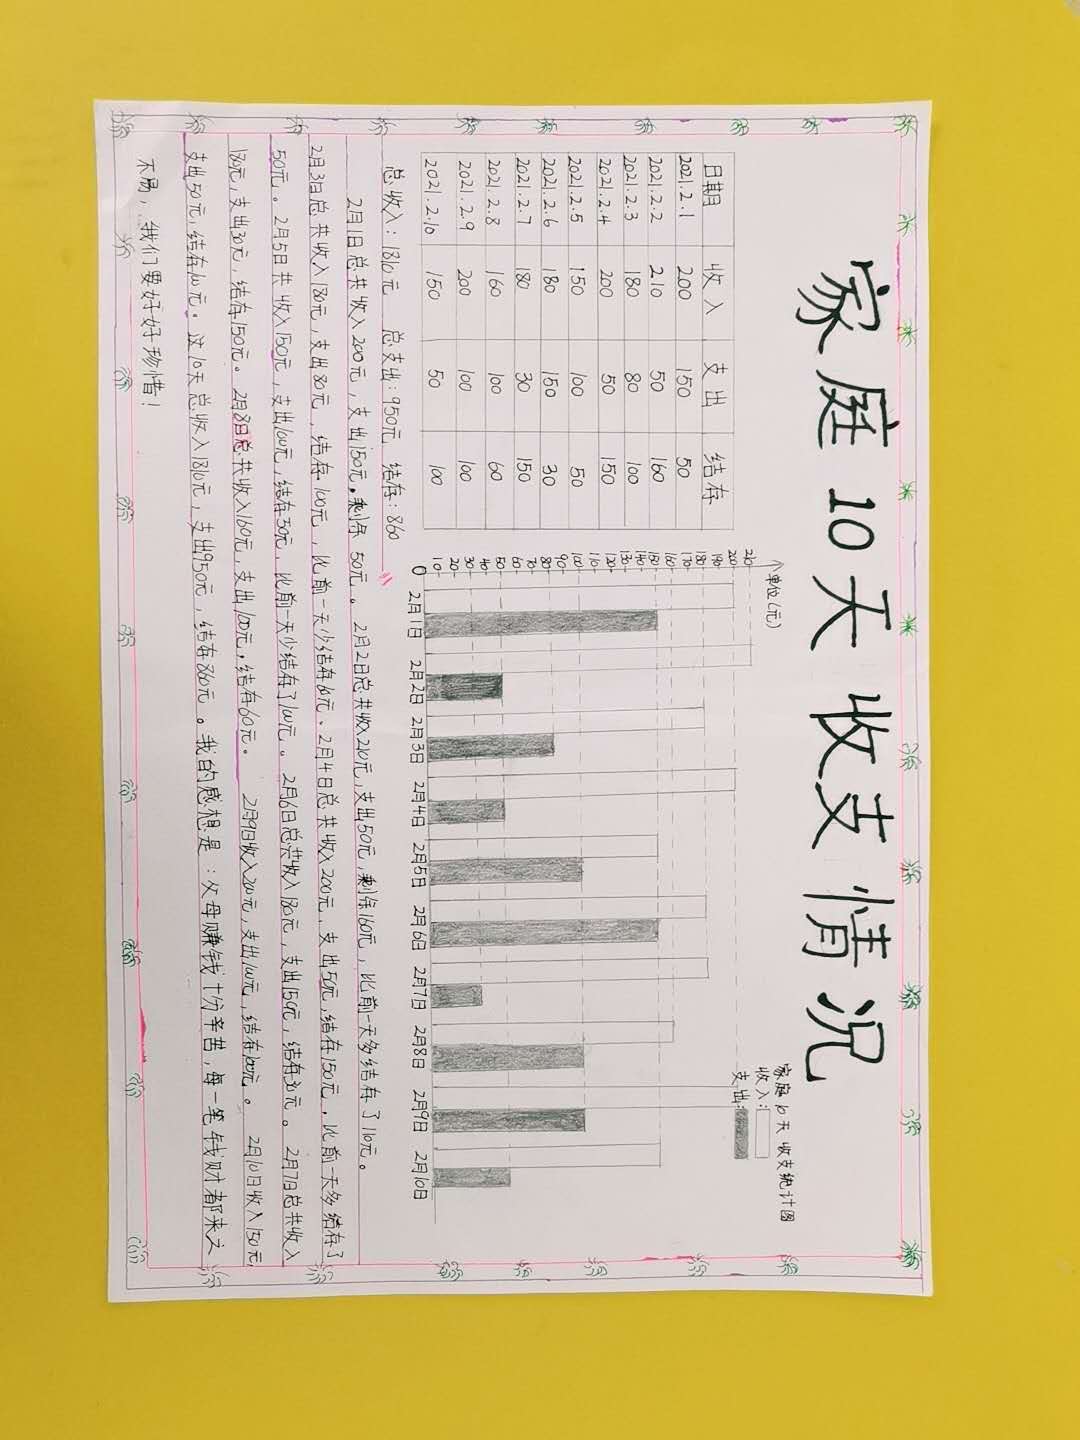 家庭10天收支情况
日期 收入 支出 结存
2021.2.1 200 150 50
2021.2.2 210 50 160
2021.2.3 180 80 100
2021.2.4 200 50 150
2021.2.5 150 100 50
2021.2.6 180 150 30
2021.2.7 180 30 150
2021.2.8 160 100 60
2021.2.9 200 100 100
2021.2.10 150 50 100
总收入:1810元 总支出:950元 结存:860
家庭10天收支统计图
收入:
支出:
单位(元)
210
200
190
180
170
160
150
140
130
120
110
100
90
80
70
60
50
40
30
20
10
0
2月1日 2月2日 2月3日 2月4日 2月5日 2月6日 2月7日 2月8日 2月9日 2月10日
2月1日总共收入200元,支出150元。剩余50元。2月2日总共收入210元,支出50元,剩余160元,比前一天多结存了110元。
2月3日总共收入180元,支出80元,结存100元,比前一天少结存60元。2月4日总共收入200元,支出50元,结存150元,比前一天多结存了
50元。2月5日共收入150元,支出100元,结存50元,比前一天少结存了100元。2月6日总共收入180元,支出150元,结存30元。2月7日总共收入
180元,支出30元,结存150元。2月8日总共收入160元,支出100元,结存60元。2月9日收入200元,支出100元,结存100元。2月10日收入150元,
支出50元,结存100元。这10天总收入1810元,支出950元,结存860元。我的感想是:父母赚钱十分辛苦,每一笔钱财都来之
不易,我们要好好珍惜!